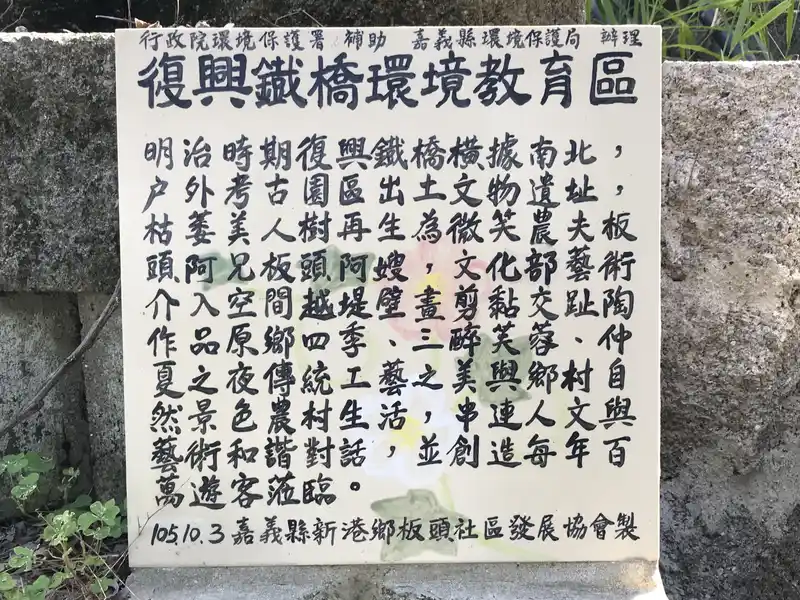 行政院環境保護署 補助 嘉義縣環境保護局 辦理
復興鐵橋環境教育區
明治時期復興鐵橋橫據南北，
户外考古園區出土文物遺址，
枯萎美人樹再生為微笑農夫，板
頭阿兄板頭阿嫂，文化部藝術
介入空間越堤壁畫剪黏交趾陶
作品原鄉四季、三醉芙蓉、仲
夏之夜傳統工藝之美與鄉村自
然景色農村生活，串連人文與
藝術和諧對話，並創造每年百
萬遊客蒞臨。
105.10.3 嘉義縣新港鄉板頭社區發展協會製